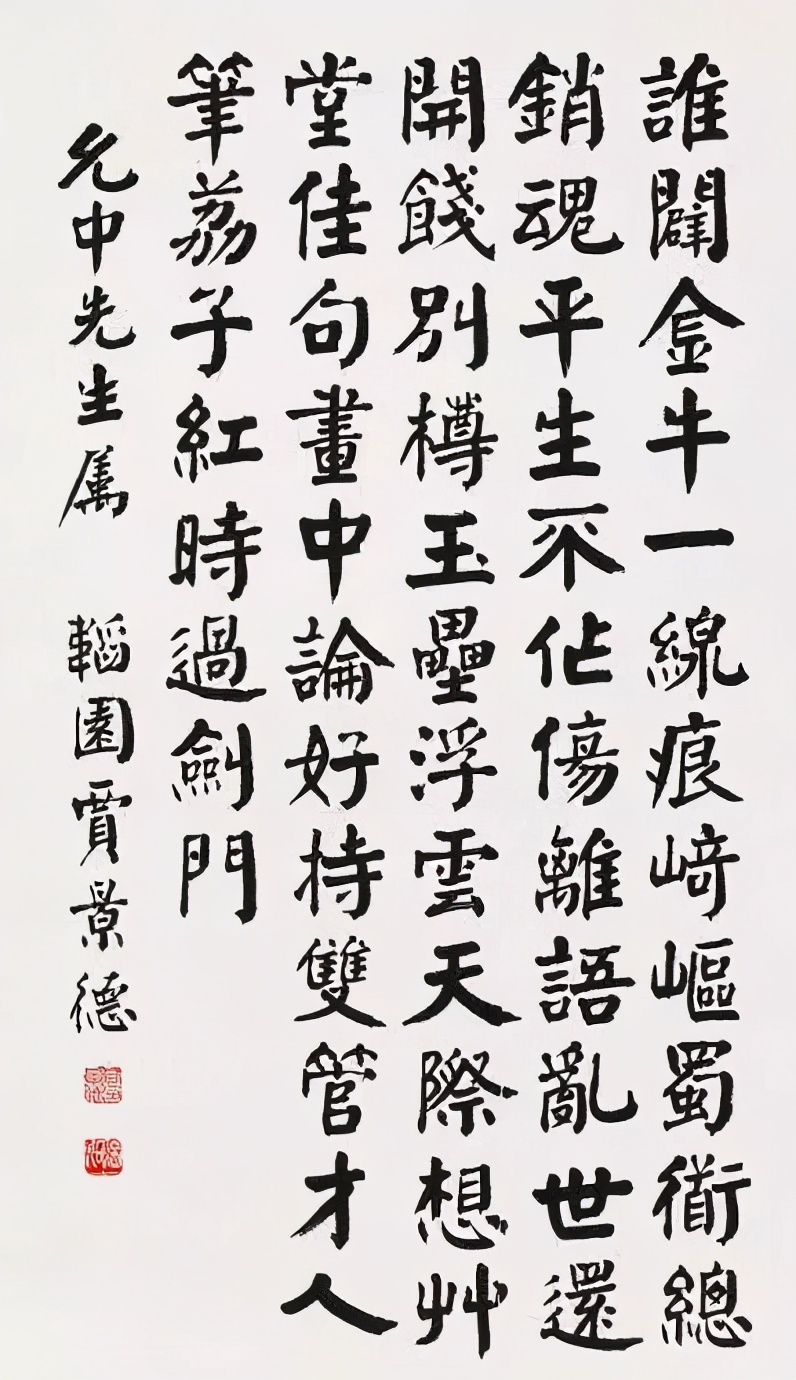 誰闢金牛一線痕崎嶇蜀衜總
銷魂平生不佔傷離語亂世還
開餞別樽玉壘浮雲天際想艸
堂佳句畫中論好持雙管才人
筆荔子紅時過劍門
允中先生属　韜園賈景德